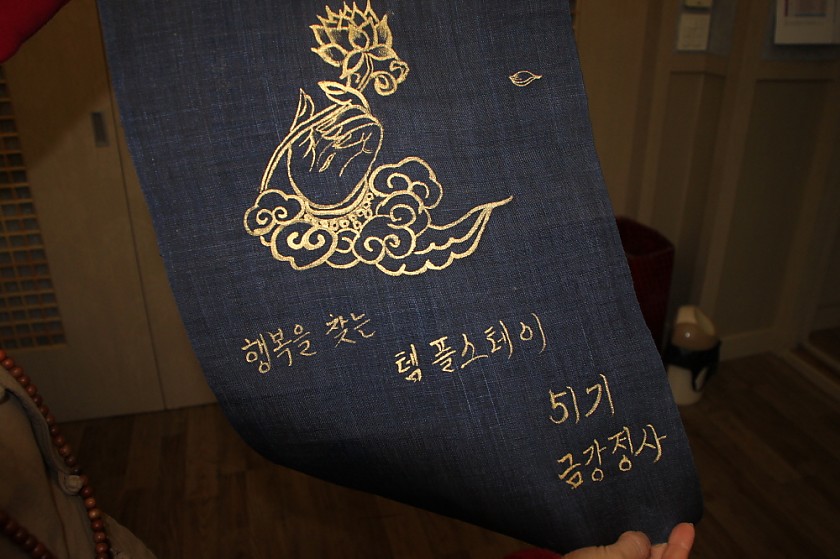 행복을 찾는
템플스테이
51기
금강정사